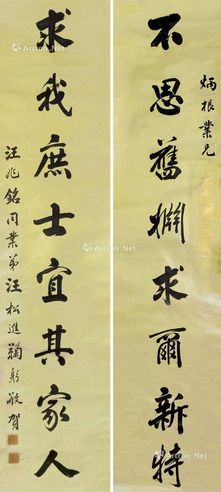 炳根業兄
不思舊姻求爾新特
求我庶士宜其家人
汪兆銘同業弟汪松進鞠躬敬賀